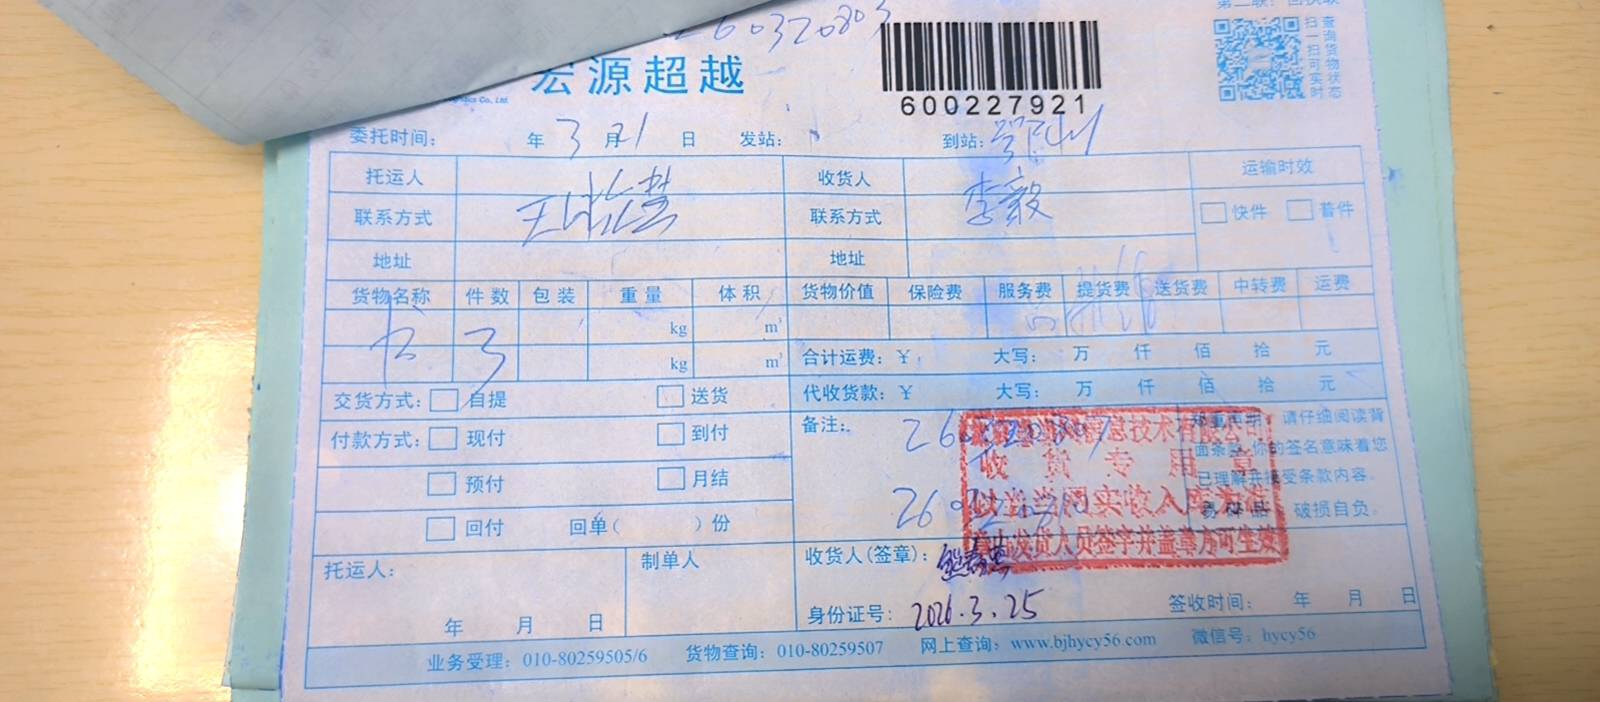 第二联：回执联
260320803
宏源超越
600227921
扫一扫可实时
查询货物状态
委托时间： 年 3 月 21 日 发站： 到站：鄂州
托运人 收货人 运输时效
联系方式 王 慧 联系方式 李毅 快件 普件
地址 地址
货物名称 件数 包装 重量 体积 货物价值 保险费 服务费 提货费 送货费 中转费 运费
3 kg m³
kg m³ 合计运费：¥ 大写： 万 仟 佰 拾 元
交货方式： 自提 送货 代收货款：¥ 大写： 万 仟 佰 拾 元
付款方式： 现付 到付 备注： 郑重声明：请仔细阅读背
面条款，你的签名意味着您
预付 月结 已理解并接受条款内容。
回付 回单（ ）份 易碎品 破损自负。
技术有限公司
收货专用章
实收入库为准
发货人员签字并盖章方可生效
托运人： 制单人 收货人(签章)：
年 月 日 身份证号： 2026.3.25 签收时间： 年 月 日
业务受理：010-80259505/6 货物查询：010-80259507 网上查询：www.bjhycy56.com 微信号：hycy56